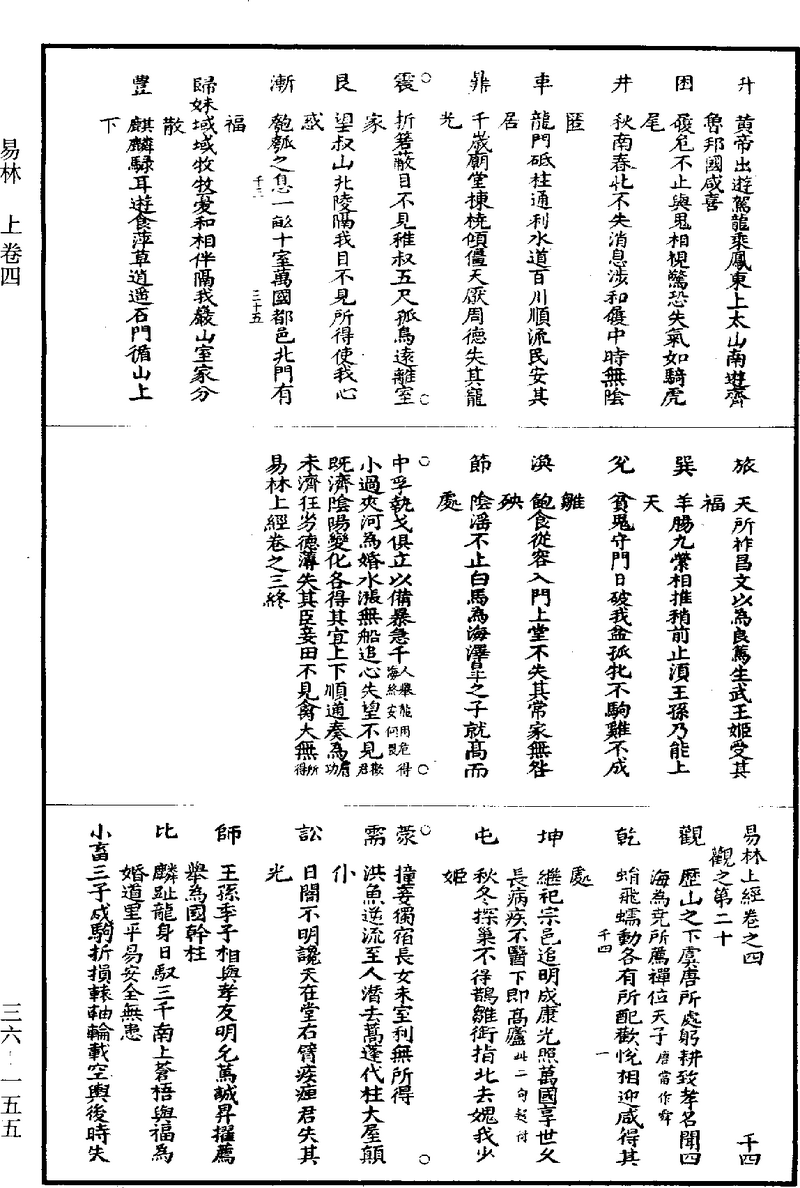 易林　上卷四
升　黃帝出遊駕龍乘鳳東上太山南遊齊
魯邦國咸喜
困　礙危不止與鬼相視驚恐失氣如騎虎
尾
井　秋南春北不失消息涉和履中時無陰
匿
革　龍門砥柱通利水道百川順流民安其
居
鼎　千歲廟堂棟橈傾僵天厭周德失其寵
光
震　折箬蔽目不見稚叔五尺孤鳥遠離室
家
艮　望叔山北陵隔我目不見所得使我心
惑
漸　匏瓠之息一畝十室萬國都邑北門有
福
千三　三十五
歸妹域域牧牧愛和相伴隔我巖山室家分
散
豐　麒麟騄耳遊食萍草逍遙石門循山上
下
旅　天所祚昌文以為良篤生武王姬受其
福
巽　羊腸九縈相推稍前止須王孫乃能上
天
兌　貧鬼守門日破我盆孤牝不駒雞不成
雛
渙　飽食從容入門上堂不失其常家無咎
殃
節　陰淫不止白馬為海澤皋之子就高而
處
中孚執戈俱立以備暴急千人舉龍用危得海終安何畏
小過夾河為婚水漲無船追心失望不見歡君
既濟陰陽變化各得其宜上下順通奏為膚功
未濟狂劣德薄失其臣妾田不見禽犬無所得
易林上經卷之三終
易林上經卷之四　千四
觀之第二十
觀　歷山之下虞唐所處躬耕致孝名聞四
海為堯所薦禪位天子唐當作舜
乾　蜎飛蠕動各有所配歡悅相迎咸得其
處
千四　一
坤　繼祀宗邑追明成康光照萬國享世久
長病疾不醫下即高廬此二句超付
屯　秋冬探巢不得鵲雛銜指北去媿我少
姬
蒙　撞妾獨宿長女未室利無所得
需　洪魚逆流至人潛去蒿蓬代柱大屋顛
仆
訟　日闇不明讒夫在堂右臂疾痺君失其
光
師　王孫季子相與孝友明允篤誠昇擢薦
舉為國幹柱
比　麟趾龍身日馭三千南上蒼梧與福為
婚道里平易安全無患
小畜三子成駒折損轅軸輪載空輿後時失
三六－一五五